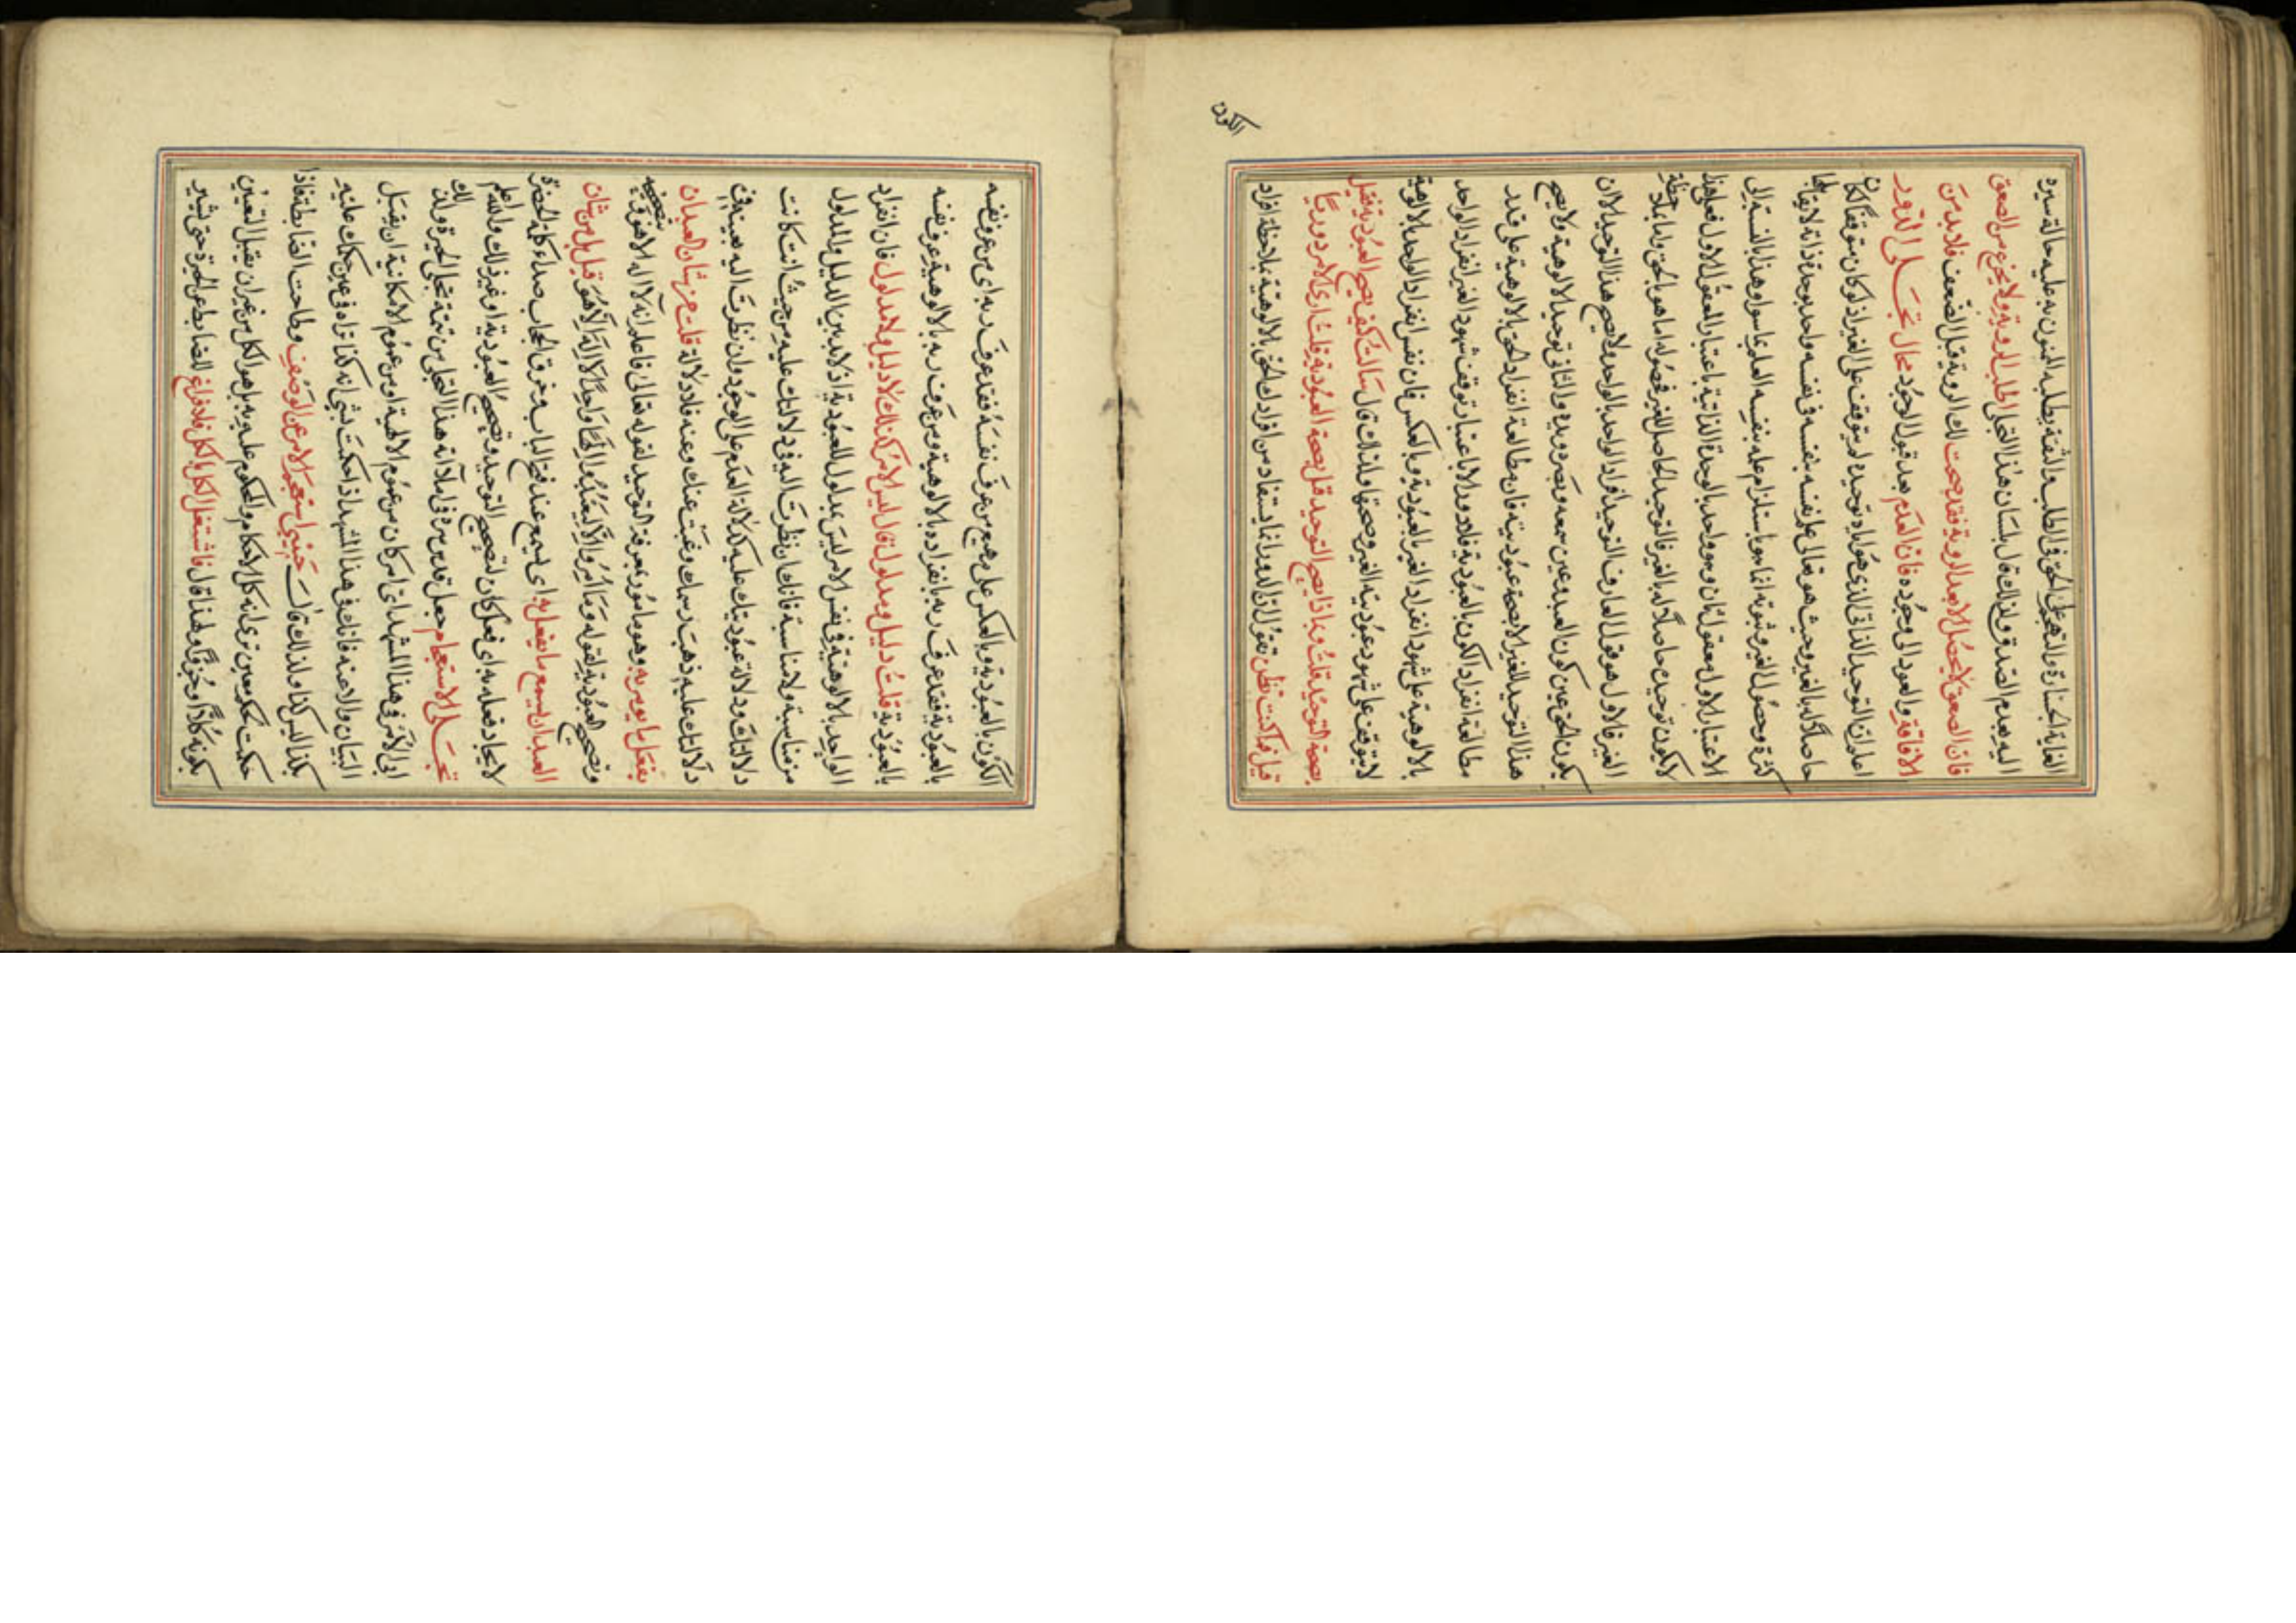 الغاية الحسارة والتهجم على الحق في الطلب والثقة بطلبه المنون به عليه حالة سيره
اليه بقدم الصدق ولذلك قال بلسان هذا التجلى اطلب الروية ولا تجزع من الصعق
فان الصعق لا يحصل الا بعد الروية فقد صحت لك الروية قبل الضعف فلا بد من
الافاقة والعود الى وجوده فان العدم بعد قبول الوجود محال تجلى الدور
اعلم ان التوحيد الذاتى الذى هو اياه توحيده لم يتوقف على الغير اذ لو كان متوقفا لكان
حاصلا له بالغير وحيث هو تعالى على نفسه بنفسه فى نفسه واحد بوحدة ذاتية لا يقابلها
كثرة وحصول الغير وثبوته انما هو باستلزام علمه بنفسه العلم بما سواه وهذا بالنسبة الى
الاعتبار الاول معقول ثان وهو واحد بالوحدة الذاتية باعتبار المعقول الاول فعلى هذا
لا يكون توحيده حاصلا له بالغير فالتوحيد الحاصل للغير فحصوله اما هو بالحق واما بملاحظة
الغير فالاول هو قول العارف التوحيد افراد الواحد بالواحد ولا يصح هذا التوحيد الا ان
يكون الحق عين كون العبد وعين سمعه وبصره ويده والثانى توحيد الالوهية ولا يصح
هذا التوحيد للغير الا بصحة عبوديته فان مطالعة انفراد الحق بالالوهية على قدر
مطالعة انفراد الكون بالعبودية فلا دور الا باعتبار توقف شهود الغير انفراد الواحد
بالالوهية على شهود انفراد الغير بالعبودية وبالعكس فان نفس انفراد الواحد بالالوهية
لا يتوقف على شهود عبودية الغير وصحتها ولذلك قال سالت كيف يصح العبودية فقيل
بصحة التوحيد قلت وبماذا يصح التوحيد قيل بصحة العبودية قلت ارى الامر دوريا
قيل فما كنت تظن تقول ان الدور انما يستفاد من افراد الحق بالالوهية بملاحظة افراد
الكون
الكون بالعبودية وبالعكس على وضع من عرف نفسه فقد عرف ربه اى من عرف نفسه
بالعبودية فقد عرف ربه بانفراده بالالوهية ومن عرف ربه بالالوهية عرف نفسه
بالعبودية قلت دليل ومدلول قال ليس الامر كذلك لا دليل ولا مدلول فان انفراد
الواحد بالالوهية فى نفس الامر ليس بمدلول للعبودية اذ لا بد بين الدليل والمدلول
من مناسبة ولا مناسبة فانك ان نظرت اليه فى دلالتك عليه من حيث انت كانت
دلالتك ودلالة عبوديتك عليه كدلالة العدم على الوجود وان نظرت اليه بعينه فى
دلالتك عليه ذهب رسمك وغبت عنك وعنه فلا دلالة قلت من شان العبد ان
يفعل ما يومر به وهو مامور بمعرفة التوحيد لقوله تعالى فاعلم انه لا اله الا هو قبة بتصحيحه
وتصحيح العبودية لقوله وما امروا الا ليعبدوا الها واحدا لا اله الا هو قيل بل من شان
العبد ان يسمع ما يفعل به اى يسمع عند فتح الباب وخرق الحجاب صداء كلمة الحضرة
لايجاد فعله به اى فعل كان لتصحيح التوحيد وتصحيح العبودية او غير ذلك والله اعلم
تجلى الاستعجام جعل قدس سره فى املائه هذا التجلى من تتمة تجلى الحيرة ولذلك
ابى الامر فى هذا المشهد اى امر كان من عموم الالهية او من عموم الامكانية ان يقبل
البيان والاعنه فانك فى هذا الشهد اذ احكمت بشئ انه كذا تراه فى عين حكمك عليه
بكذا ليس كذا ولذلك قال حينئذ استعجم الامر عن الوصف وطاحت الضابطة فاذا
حكمت بحكم معين ترى انه كل الاحكام والمحكوم عليه به بل هو الكل من غير ان يقبل التعين
بكونه كلا او جزوا ولهذا قال فاشتغل الكل بالكل فلا فراغ للضابط عن الحيرة حتى تشير